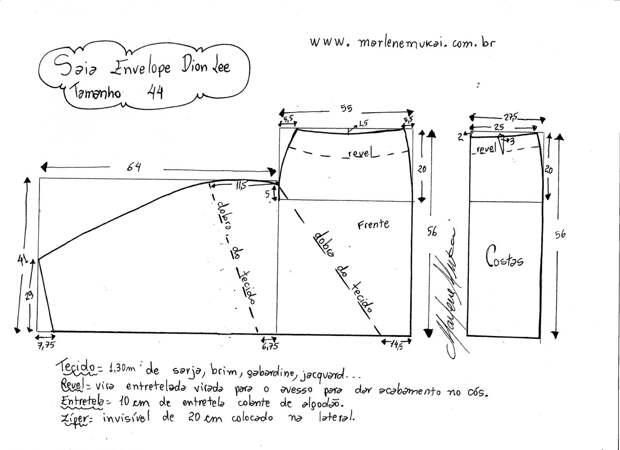 www. marlenemukai.com.br
Saia Envelope Dion Lee
Tamanho 44
55
5,5 1,5 5,5
revel
20
64
11,5
5
dobra do tecido
dobra do tecido
Frente
56
41
23
7,75 6,75 14,5
27,5
25
2 3
revel
20
56
Costas
Marlene Mukai
Tecido = 1,30m de sarja, brim, gabardine, jacquard...
Revel = vira entretelada virada para o avesso para dar acabamento no cós.
Entretela = 10 cm de entretela colante de algodão.
Zíper = invisível de 20 cm colocado na lateral.